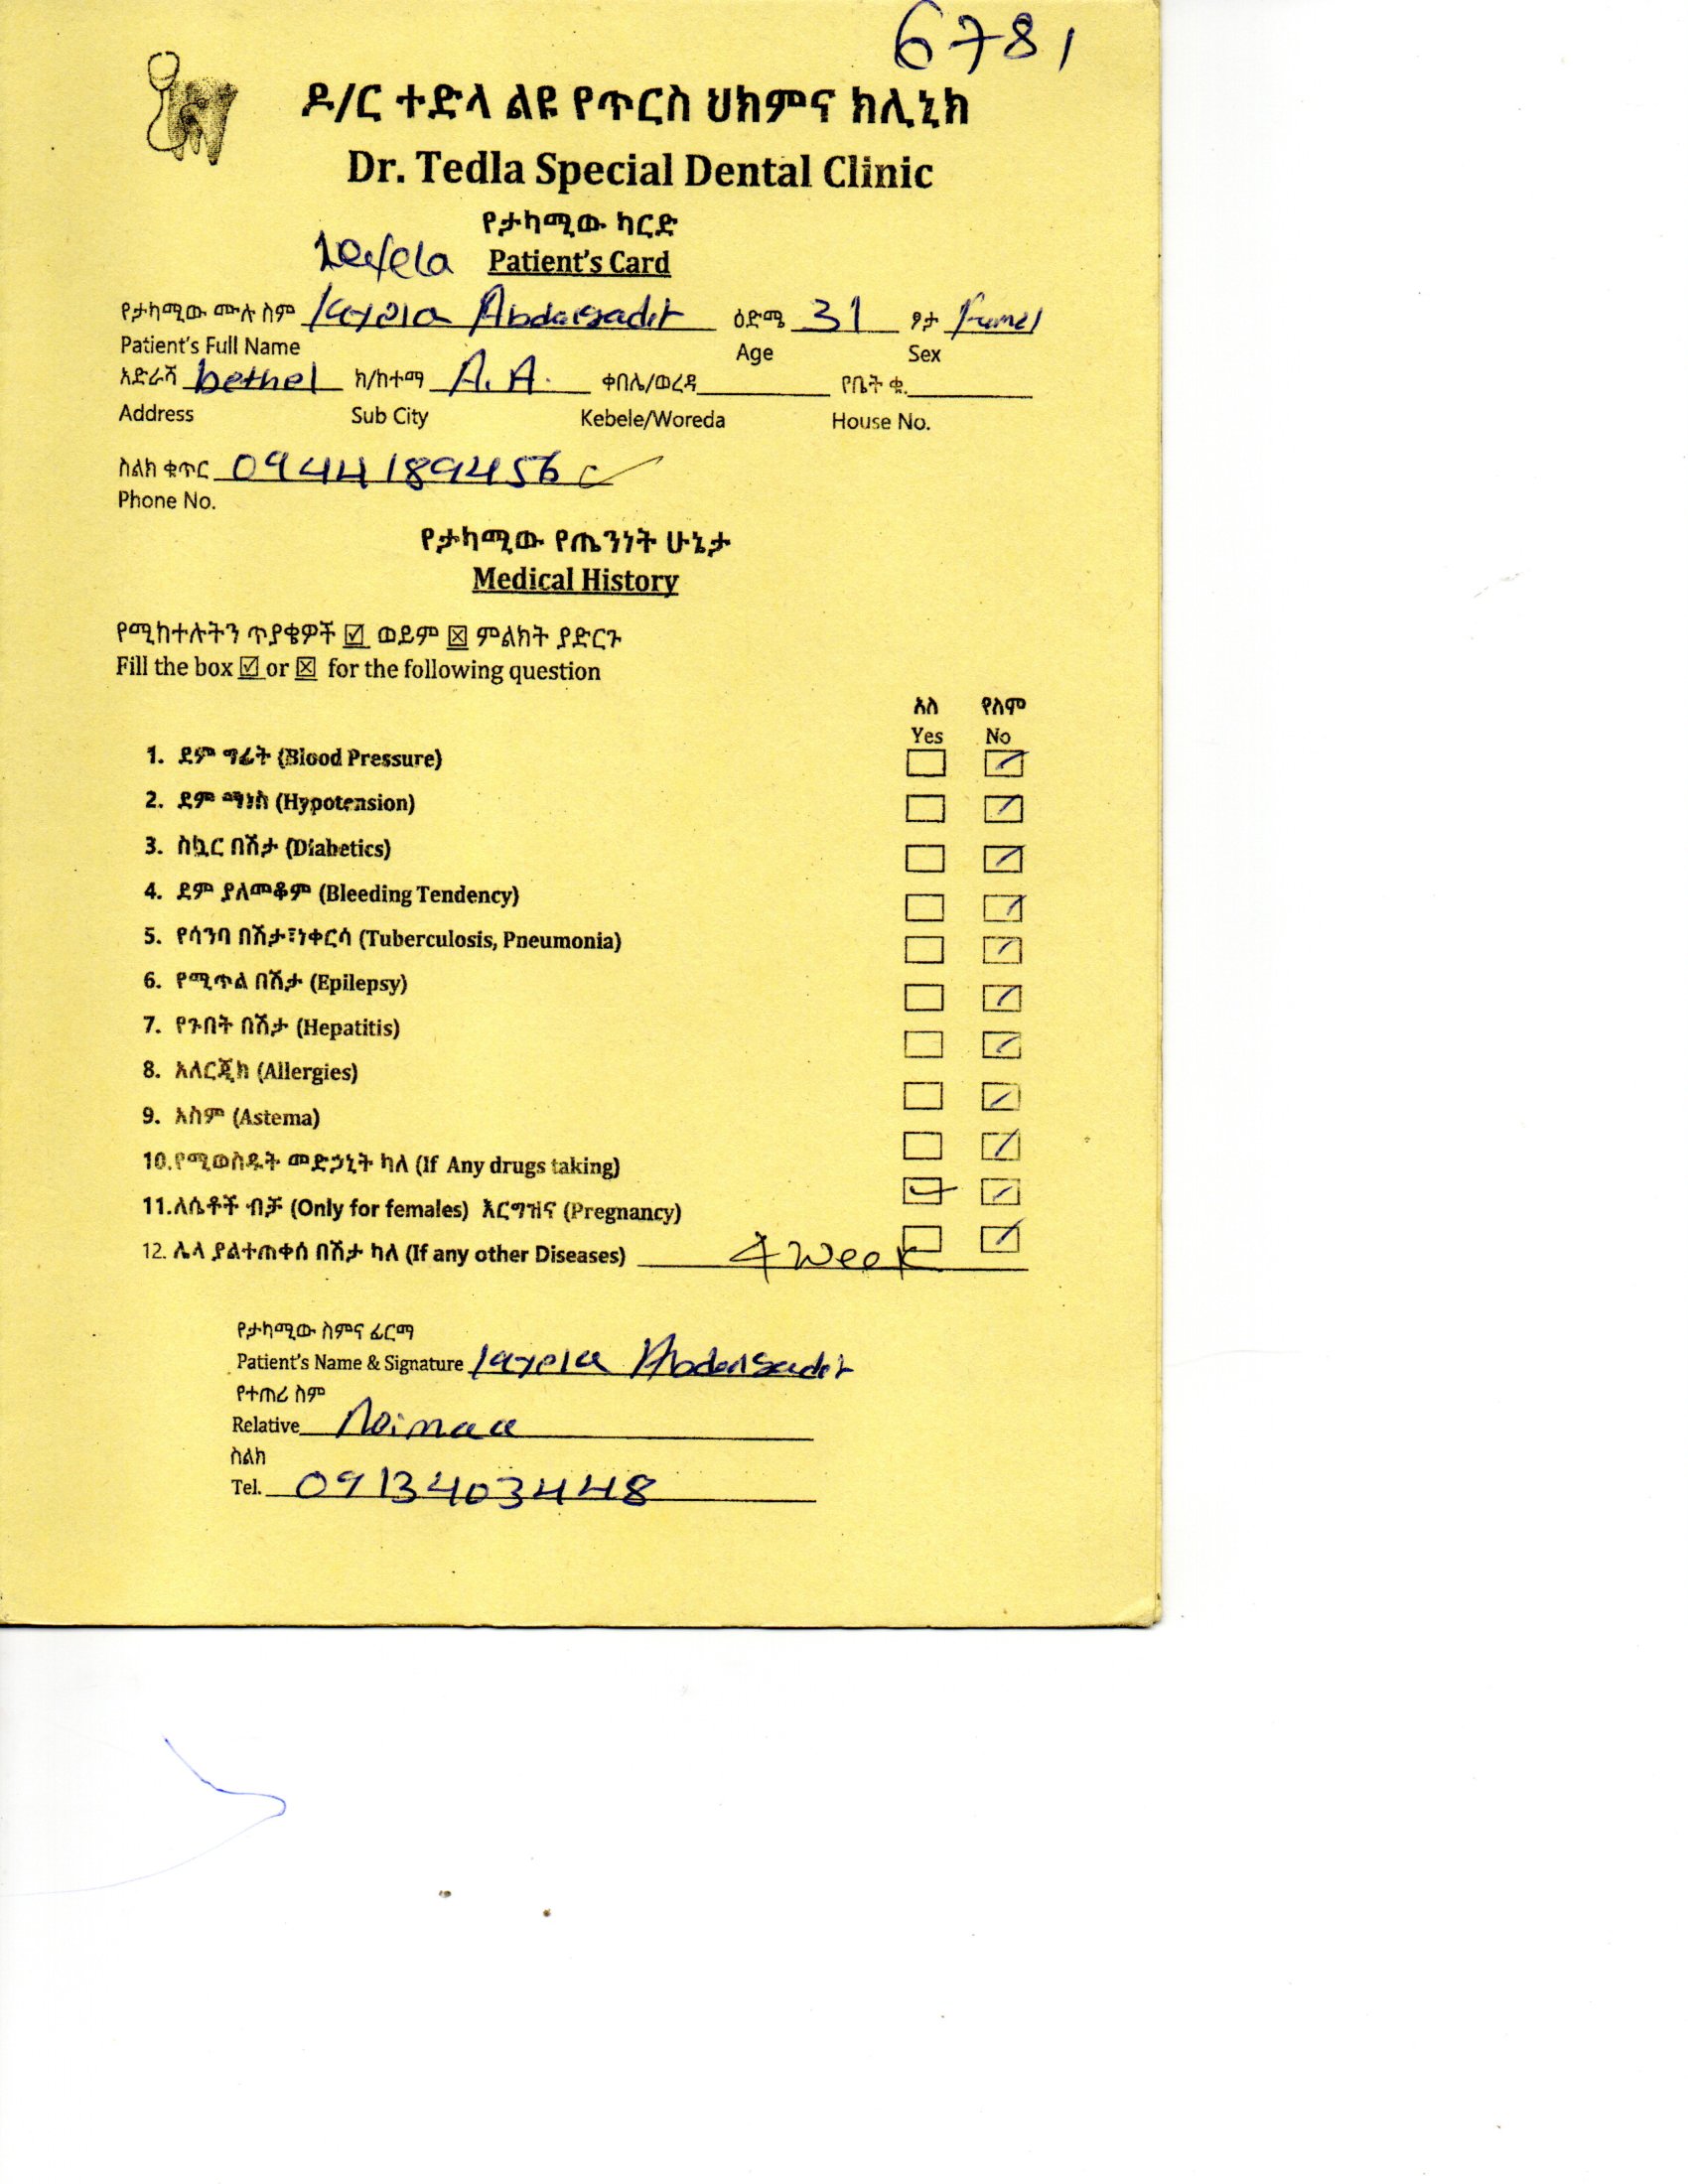 6781
ዶ/ር ተድላ ልዩ የጥርስ ህክምና ክሊኒክ
Dr. Tedla Special Dental Clinic
የታካሚው ካርድ
Patient's Card
የታካሚው ሙሉ ስም ዕድሜ 31 ፆታ
Patient's Full Name Age Sex
አድራሻ bethel ክ/ከተማ A.A. ቀበሌ/ወረዳ የቤት ቁ.
Address Sub City Kebele/Woreda House No.
ስልክ ቁጥር 0944189456
Phone No.
የታካሚው የጤንነት ሁኔታ
Medical History
የሚከተሉትን ጥያቄዎች ☑ ወይም ☒ ምልክት ያድርጉ
Fill the box ☑ or ☒ for the following question
አለ የለም
Yes No
1. ደም ግፊት (Blood Pressure)
2. ደም ማነስ (Hypotension)
3. ስኳር በሽታ (Diabetics)
4. ደም ያለመቆም (Bleeding Tendency)
5. የሳንባ በሽታ፣ነቀርሳ (Tuberculosis, Pneumonia)
6. የሚጥል በሽታ (Epilepsy)
7. የጉበት በሽታ (Hepatitis)
8. አለርጂክ (Allergies)
9. አስም (Astema)
10.የሚወስዱት መድኃኒት ካለ (If Any drugs taking)
11.ለሴቶች ብቻ (Only for females) እርግዝና (Pregnancy)
12. ሌላ ያልተጠቀሰ በሽታ ካለ (If any other Diseases) 4 Week
የታካሚው ስምና ፊርማ
Patient's Name & Signature
የተጠሪ ስም
Relative
ስልክ
Tel. 0913403448